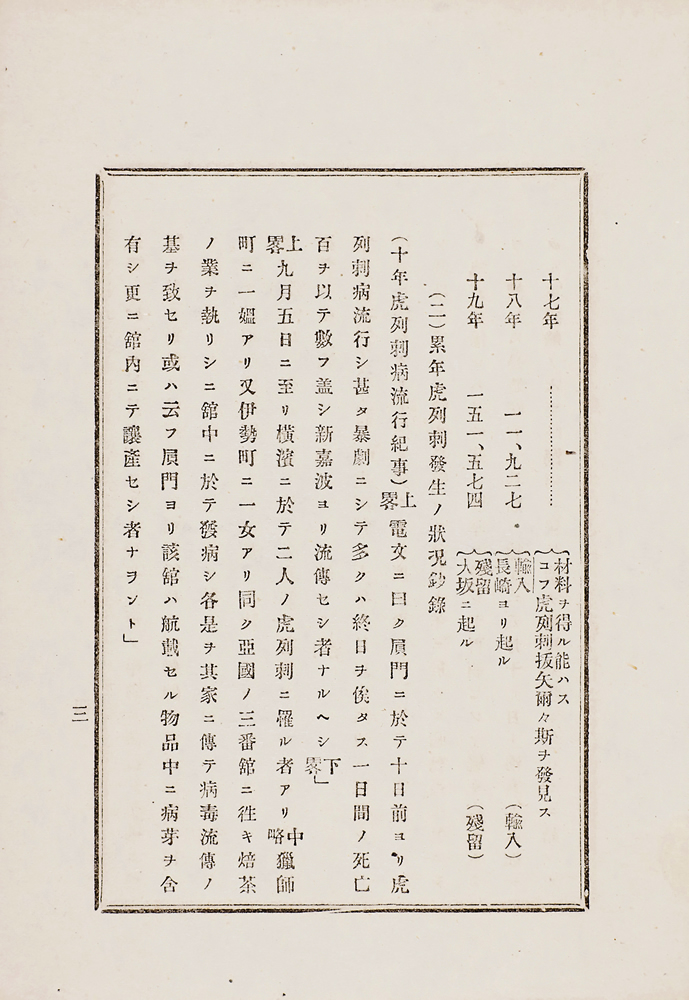 十七年 ………………… 材料ヲ得ル能ハス
コフ虎列刺拔矢爾々斯ヲ發見ス
十八年 一一、九二七 輸入
長崎ヨリ起ル (輸入)
十九年 一五一、五七四 殘留
大坂ニ起ル (殘留)
(二)累年虎列刺發生ノ狀況鈔錄
(十年虎列刺病流行紀事)上畧電文ニ曰ク厦門ニ於テ十日前ヨリ虎
列刺病流行シ甚タ暴劇ニシテ多クハ終日ヲ俟タス一日間ノ死亡
百ヲ以テ數フ盖シ新嘉波ヨリ流傳セシ者ナルヘシ下畧」
上畧九月五日ニ至リ橫濱ニ於テ二人ノ虎列刺ニ罹ル者アリ中略獵師
町ニ一嫗アリ又伊勢町ニ一女アリ同ク亞國ノ三番舘ニ徃キ焙茶
ノ業ヲ執リシニ舘中ニ於テ發病シ各是ヲ其家ニ傳テ病毒流傳ノ
基ヲ致セリ或ハ云フ厦門ヨリ該舘ハ航載セル物品中ニ病芽ヲ含
有シ更ニ舘内ニテ讓產セシ者ナヲント」
三